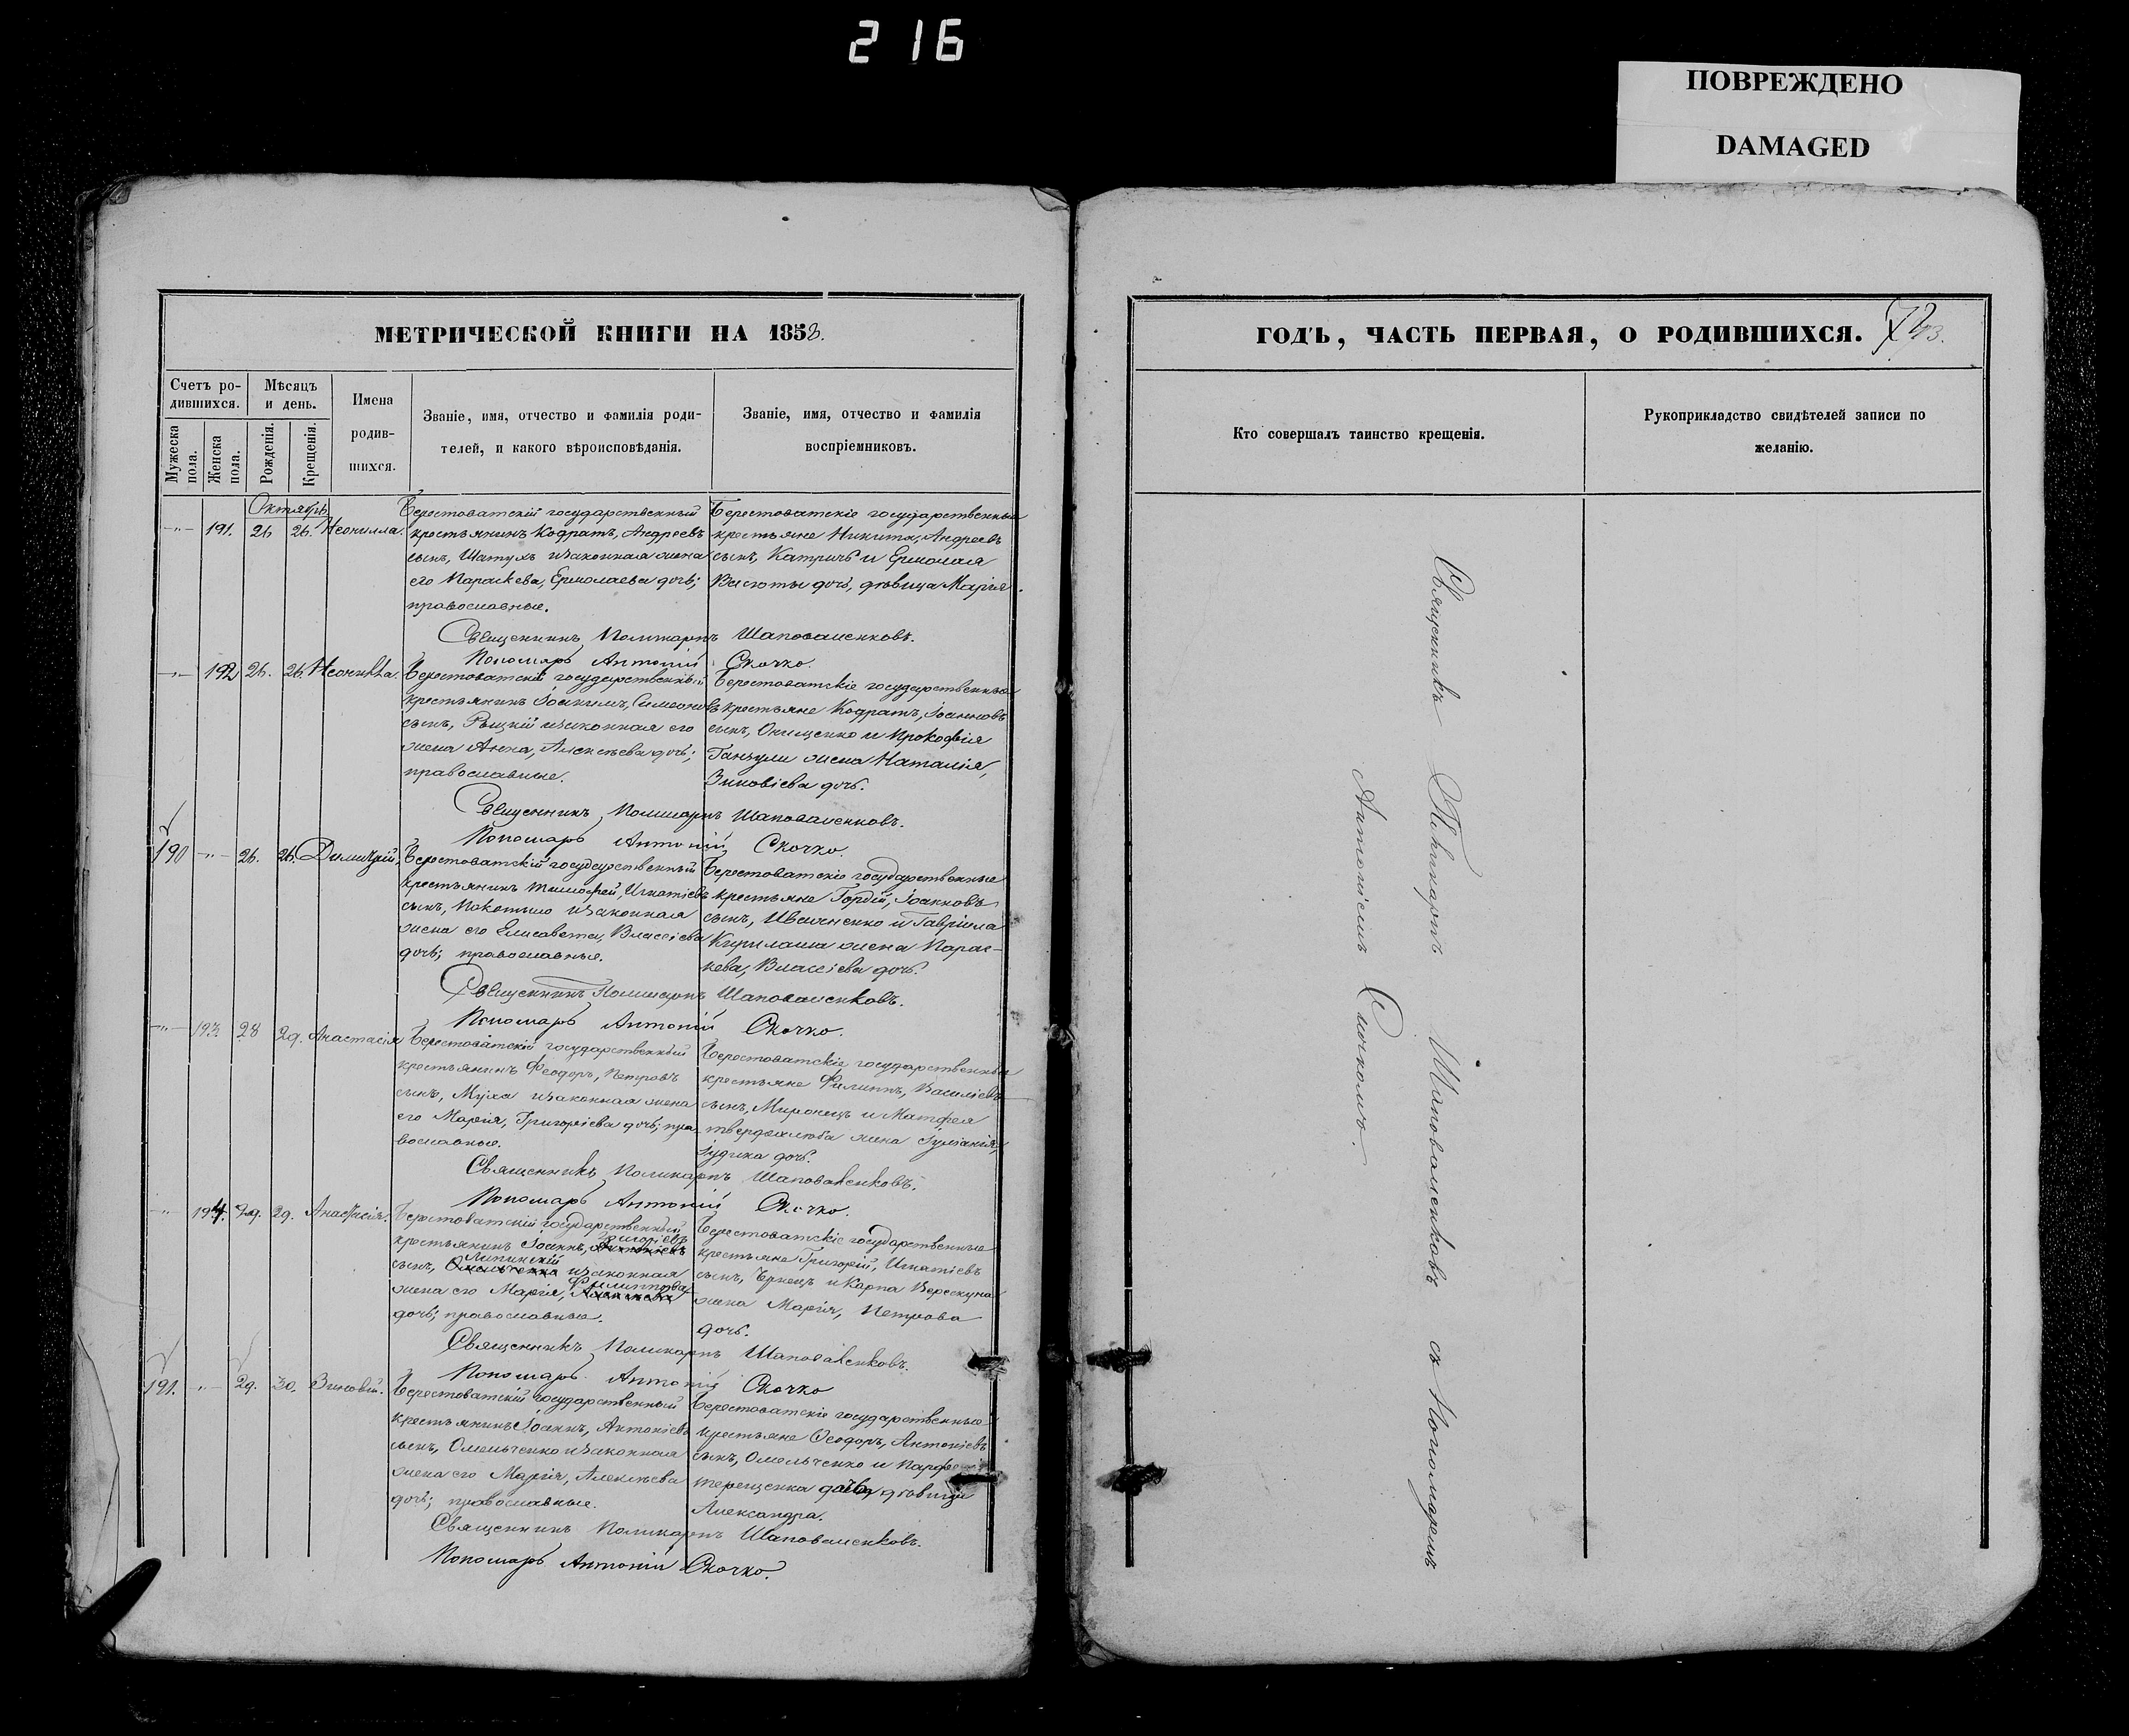 216
ПОВРЕЖДЕНО
DAMAGED
МЕТРИЧЕСКОЙ КНИГИ НА 1858.
Счетъ ро-
дившихся.
Мѣсяцъ
и день.
Имена
родив-
шихся.
Званіе, имя, отчество и фамилія роди-
телей, и какого вѣроисповѣданія.
Званіе, имя, отчество и фамилія
воспріемниковъ.
Мужеска
пола.
Женска
пола.
Рожденія.
Крещенія.
Октябрь
191. 26 26. Неонилла.
Берестоватскій государственный
крестьянинъ Кодратъ, Андреевъ
сынъ, Шатухъ и законная жена
его Параскева, Ермолаева дочь;
православные.
Берестоватскіе государственные
крестьяне Никита, Андреевъ
сынъ, Катричъ и Ермолая
Висюты дочь, дѣвица Марія.
Священникъ Поликарпъ Шаповаленковъ.
Пономарь Антоній Скочко.
192 26. 26. Неонилла.
Берестоватскій государственный
крестьянинъ Іоакимъ, Симеоновъ
сынъ, Рыцкій и законная его
жена Анна, Алексѣева дочь;
православные.
Берестоватскіе государственные
крестьяне Кодратъ, Іоанновъ
сынъ, Онищенко и Прокофія
Ганжули жена Наталія,
Зиновіева дочь.
Священникъ Поликарпъ Шаповаленковъ.
Пономарь Антоній Скочко.
190 26. 26. Димитрій.
Берестоватскій государственный
крестьянинъ Тимофей, Игнатіевъ
сынъ, Покотило и законная
жена его Елисавета, Власіева
дочь; православные.
Берестоватскіе государственные
крестьяне Гордій, Іоанновъ
сынъ, Иваченко и Гавріила
Кирилаша жена Парас-
кева, Власіева дочь.
Священникъ Поликарпъ Шаповаленковъ.
Пономарь Антоній Скочко.
193. 28 29. Анастасія
Берестоватскій государственный
крестьянинъ Феодоръ, Петровъ
сынъ, Муха и законная жена
его Марія, Григоріева дочь; пра-
вославные.
Берестоватскіе государственные
крестьяне Филиппъ, Василіевъ
сынъ, Миронецъ и Матфея
Твердохлѣба жена Іуліанія,
Іудина дочь.
Священникъ Поликарпъ Шаповаленковъ.
Пономарь Антоній Скочко.
194. 29. 29. Анастасія.
Берестоватскій государственный
Григоріевъ
крестьянинъ Іоаннъ, Антоніевъ
Липинскій
сынъ, Омельченко и законная
Филиппова
жена его Марія, Алексѣева
дочь; православные.
Берестоватскіе государственные
крестьяне Григорій, Игнатіевъ
сынъ, Чернецъ и Карпа Верескуна
жена Марія, Петрова
дочь.
Священникъ Поликарпъ Шаповаленковъ.
Пономарь Антоній Скочко
191. 29. 30. Зиновій.
Берестоватскій государственный
крестьянинъ Іоаннъ, Антоніевъ
сынъ, Омельченко и законная
жена его Марія, Алексѣева
дочь; православные.
Берестоватскіе государственные
крестьяне Феодоръ, Антоніевъ
сынъ, Омельченко и
Терещенка дочь дѣвица
Александра.
Священникъ Поликарпъ Шаповаленковъ.
Пономарь Антоній Скочко.
ГОДЪ, ЧАСТЬ ПЕРВАЯ, О РОДИВШИХСЯ.
Кто совершалъ таинство крещенія.
Рукоприкладство свидѣтелей записи по
желанію.
Священникъ Поликарпъ Шаповаленковъ съ Пономаремъ
Антоніемъ Скочкомъ.